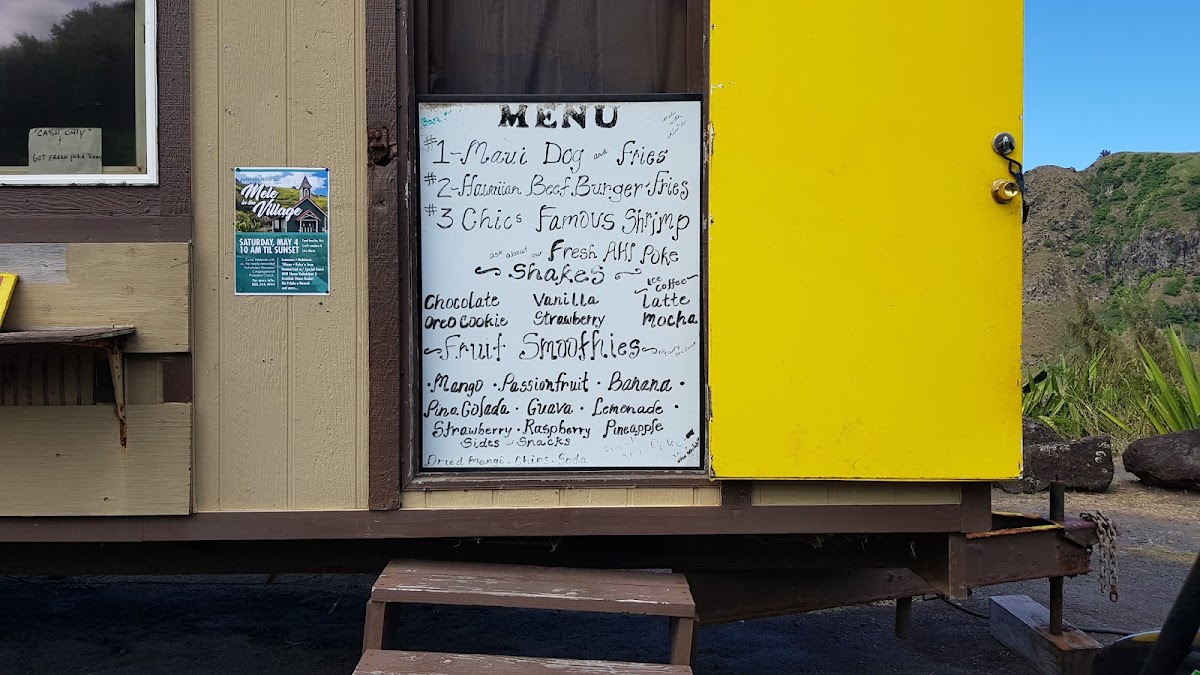 "CASH ONLY"
GOT FRESH Poke Today
Mele
in the
Village
SATURDAY, MAY 4
10 AM TIL SUNSET
MENU
#1-Maui Dog and Fries
#2-Hawaiian Beef Burger & Fries
#3 Chics Famous Shrimp
ask about our Fresh AHI Poke
~Shakes~
Ice
~Coffee~
Chocolate Vanilla Latte
Oreo Cookie Strawberry Mocha
~Fruit Smoothies~
·Mango·Passionfruit·Banana·
Pina Colada·Guava·Lemonade·
Strawberry·Raspberry Pineapple
Sides and Snacks
Dried Mango, Chips, Soda